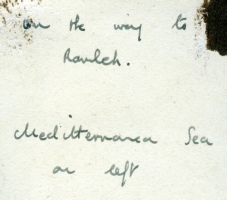 on the way to
Ramleh.
Mediterranea Sea
on left